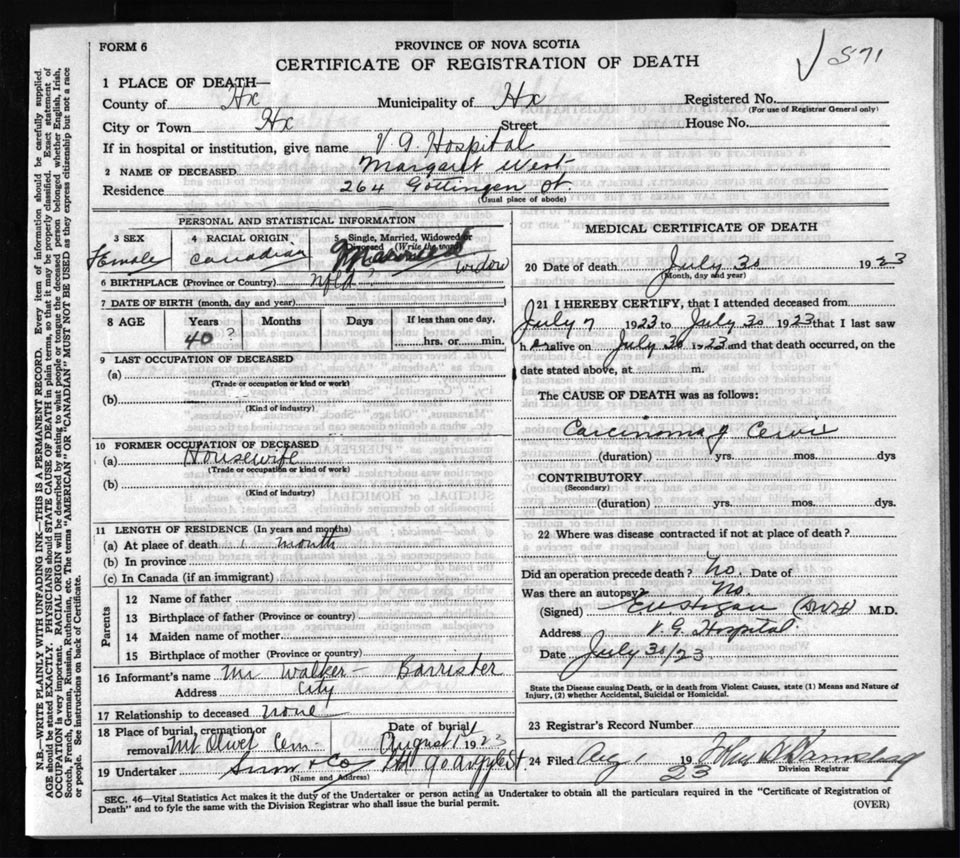 FORM 6
PROVINCE OF NOVA SCOTIA
CERTIFICATE OF REGISTRATION OF DEATH
571
1 PLACE OF DEATH—
County of Hx Municipality of Hx Registered No.
(For use of Registrar General only)
City or Town Hx Street House No.
If in hospital or institution, give name V. G. Hospital
2 NAME OF DECEASED Margaret West
Residence 264 Gottingen St.
(Usual place of abode)
PERSONAL AND STATISTICAL INFORMATION
3 SEX
Female
4 RACIAL ORIGIN
Canadian
5 Single, Married, Widowed or
(Write the word)
Married widow
6 BIRTHPLACE (Province or Country) Nfld
7 DATE OF BIRTH (month, day and year)
8 AGE Years Months Days If less than one day,
40? hrs. or min.
9 LAST OCCUPATION OF DECEASED
(a)
(Trade or occupation or kind or work)
(b)
(Kind of industry)
10 FORMER OCCUPATION OF DECEASED
(a) Housewife
(Trade or occupation or kind of work)
(b)
(Kind of industry)
11 LENGTH OF RESIDENCE (In years and months)
(a) At place of death 1 month
(b) In province
(c) In Canada (if an immigrant)
Parents
12 Name of father
13 Birthplace of father (Province or country)
14 Maiden name of mother
15 Birthplace of mother (Province or country)
16 Informant's name Mr Walker Barrister
Address City
17 Relationship to deceased none
18 Place of burial, cremation or removal Mt Olivet Cem
Date of burial August 1st 1923
19 Undertaker Snow & Co 90 Argyle St.
(Name and Address)
MEDICAL CERTIFICATE OF DEATH
20 Date of death July 30 1923
(Month, day and year)
21 I HEREBY CERTIFY, that I attended deceased from
July 7 1923 to July 30 1923 that I last saw
h alive on July 30 1923 and that death occurred, on the
date stated above, at m.
The CAUSE OF DEATH was as follows:
Carcinoma of Cervix
(duration) yrs. mos. dys
CONTRIBUTORY
(Secondary)
(duration) yrs. mos. dys.
22 Where was disease contracted if not at place of death?
Did an operation precede death? No. Date of
Was there an autopsy? No.
(Signed) M.D.
Address V. G. Hospital
Date July 30/23
State the Disease causing Death, or in death from Violent Causes, state (1) Means and Nature of
Injury, (2) whether Accidental, Suicidal or Homicidal.
23 Registrar's Record Number
24 Filed Aug 1 1923
Division Registrar
SEC. 46—Vital Statistics Act makes it the duty of the Undertaker or person acting as Undertaker to obtain all the particulars required in the "Certificate of Registration of
Death" and to fyle the same with the Division Registrar who shall issue the burial permit.
(OVER)
N.B.—WRITE PLAINLY WITH UNFADING INK—THIS IS A PERMANENT RECORD. Every item of information should be carefully supplied.
AGE should be stated EXACTLY. PHYSICIANS should STATE CAUSE OF DEATH in plain terms, so that it may be properly classified. Exact statement of
OCCUPATION is very important. RACIAL ORIGIN will be described by stating to what people or tongue the deceased person belonged whether English, Irish,
Scotch, French, German, Russian, Ruthenian, etc. The terms "AMERICAN" OR "CANADIAN" MUST NOT BE USED as they express citizenship but not a race
or people. See instructions on back of Certificate.